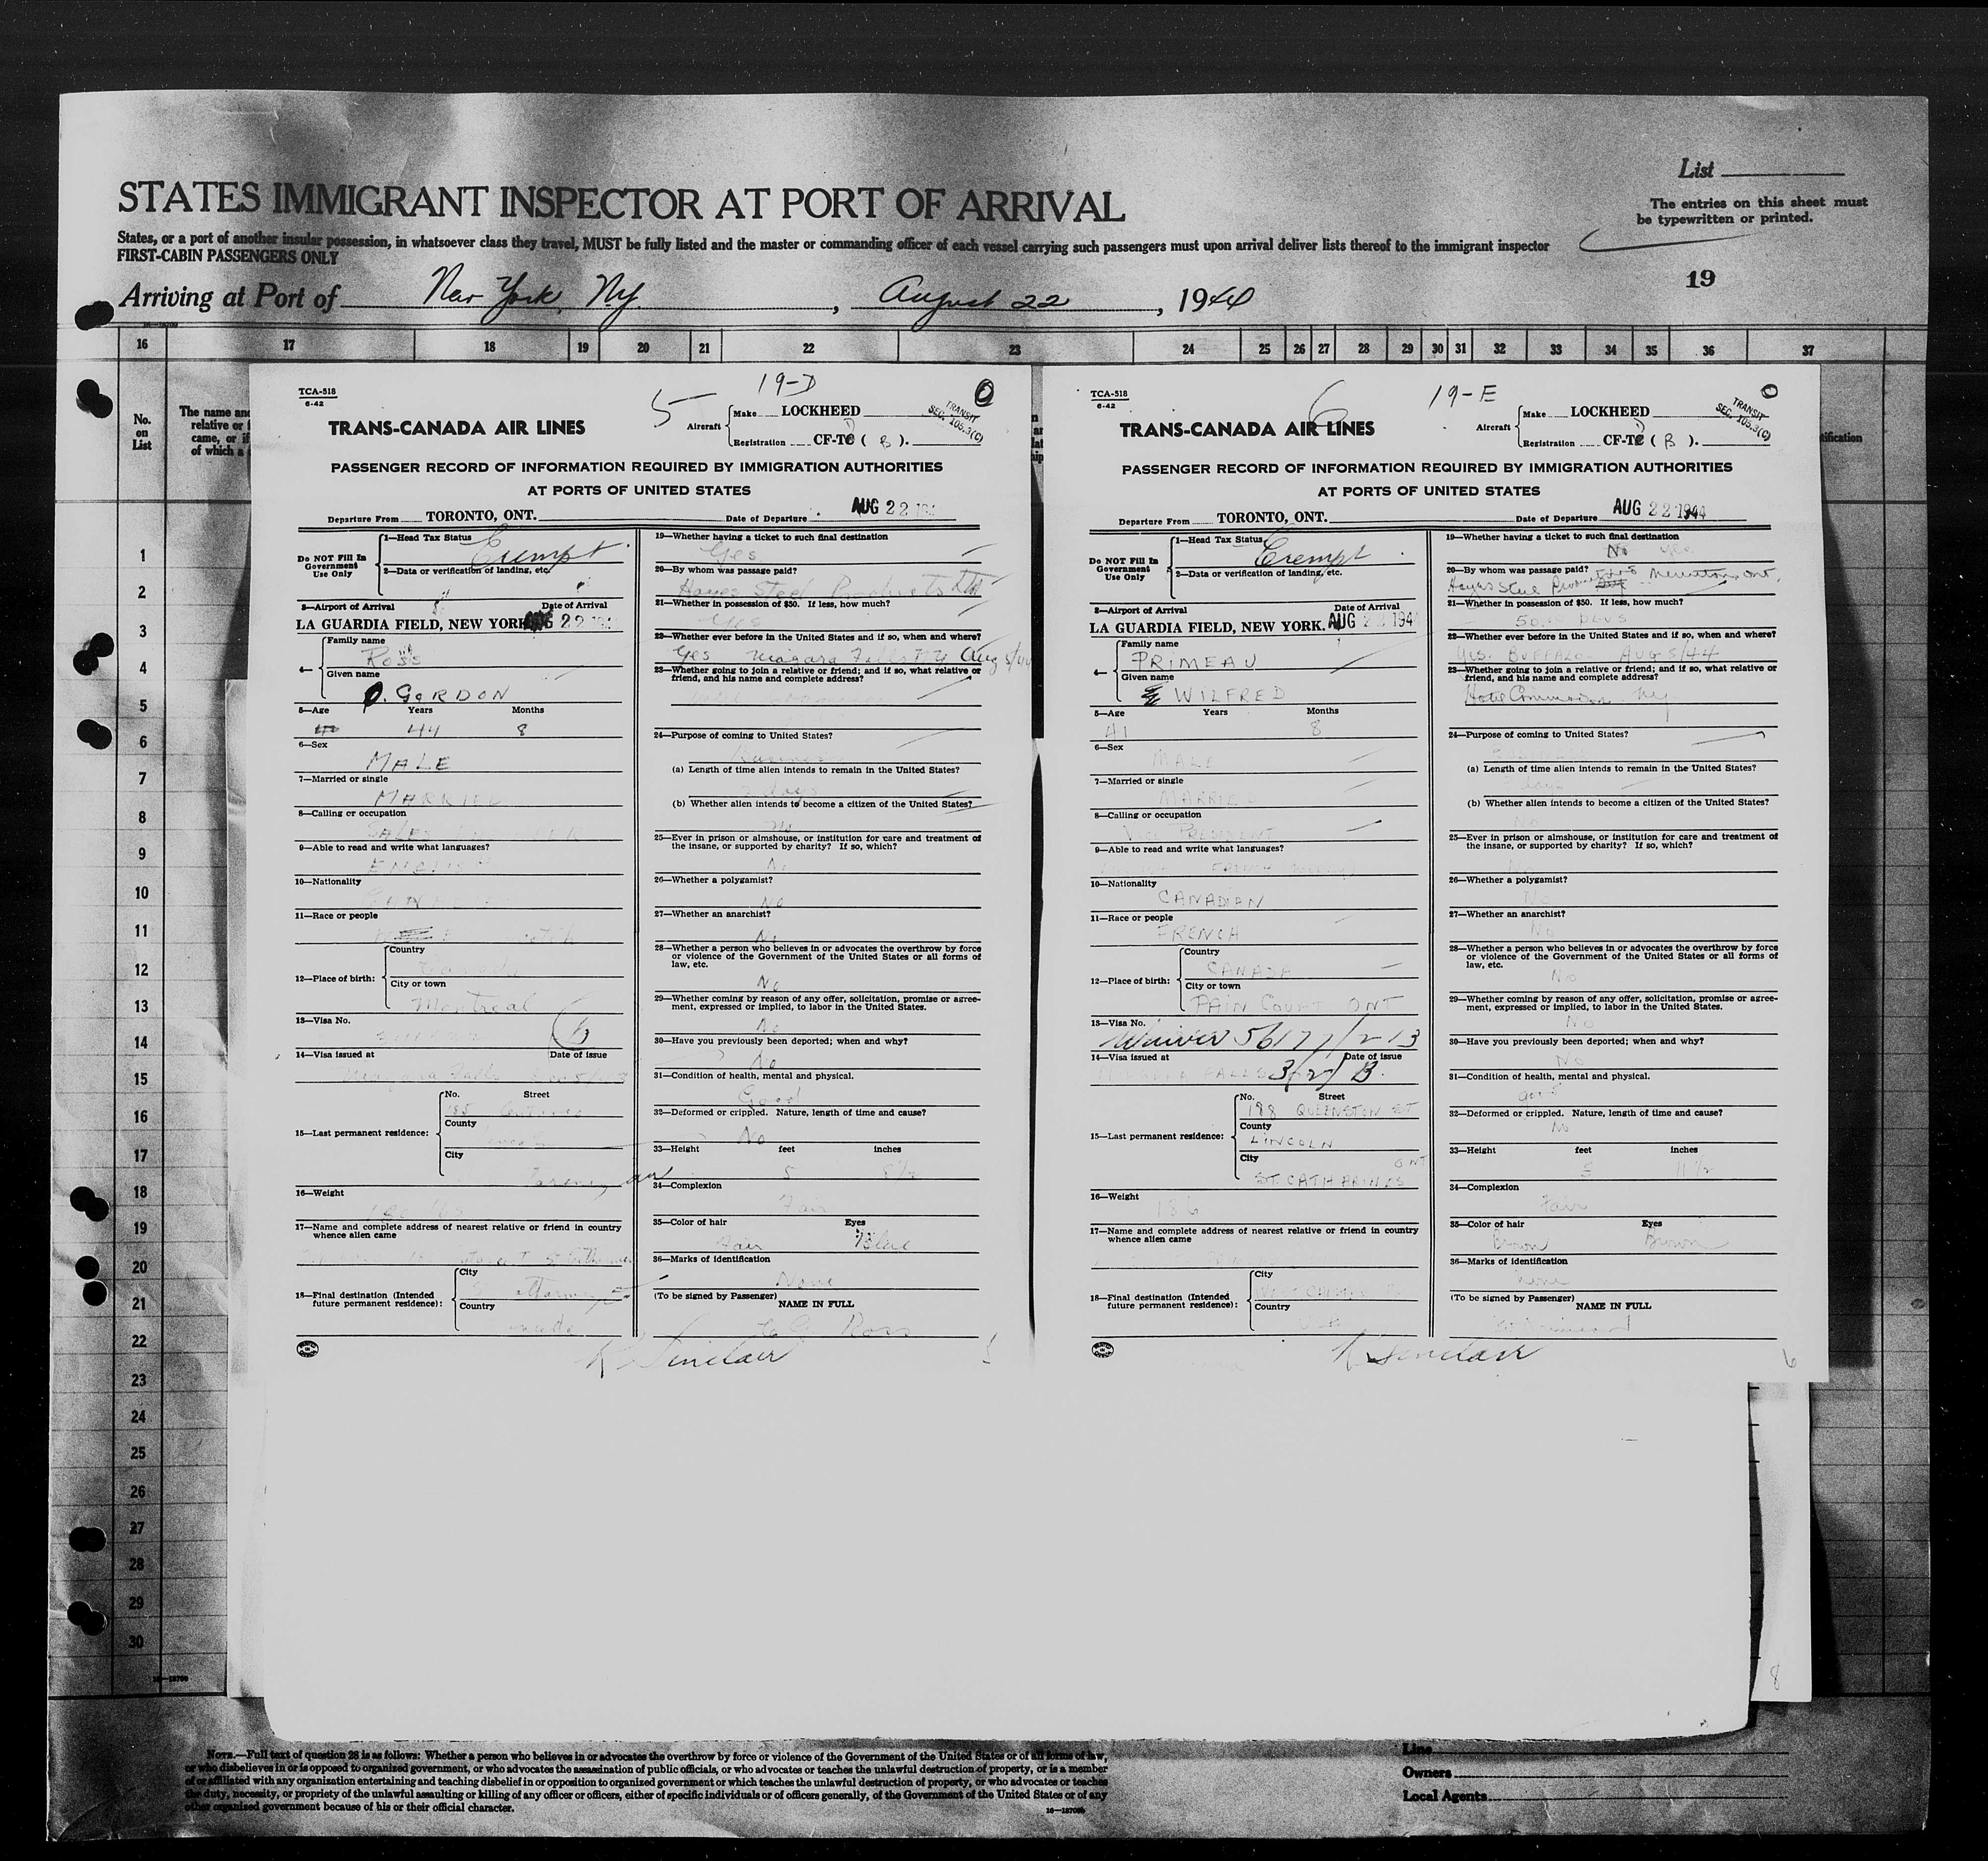 List
STATES IMMIGRANT INSPECTOR AT PORT OF ARRIVAL
The entries on this sheet must
be typewritten or printed.
States, or a port of another insular possession, in whatsoever class they travel, MUST be fully listed and the master or commanding officer of each vessel carrying such passengers must upon arrival deliver lists thereof to the immigrant inspector
FIRST-CABIN PASSENGERS ONLY
19
Arriving at Port of New York, NY. , August 22 , 1944
16 17 18 19 20 21 22 23 24 25 26 27 28 29 30 31 32 33 34 35 36 37
No.
on
List
The name and
relative or f
came, or if
of which a
1
2
3
4
5
6
7
8
9
10
11
12
13
14
15
16
17
18
19
20
21
22
23
24
25
26
27
28
29
30
TCA-518
6-42
5 19-D
TRANS-CANADA AIR LINES
Aircraft
Make LOCKHEED
Registration CF-TC ( B ).
TRANSIT
SEC. 105.3(C)
PASSENGER RECORD OF INFORMATION REQUIRED BY IMMIGRATION AUTHORITIES
AT PORTS OF UNITED STATES
Departure From TORONTO, ONT. Date of Departure AUG 22 194
Do NOT Fill In
Government
Use Only
1—Head Tax Status Exempt
2—Data or verification of landing, etc.
3—Airport of Arrival Date of Arrival
LA GUARDIA FIELD, NEW YORK AUG 22 194
4—
Family name
ROSS
Given name
GORDON
5—Age Years Months
44 8
6—Sex
MALE
7—Married or single
MARRIED
8—Calling or occupation
SALES
9—Able to read and write what languages?
ENGLISH
10—Nationality
11—Race or people
12—Place of birth:
Country
Canada
City or town
Montreal
13—Visa No.
14—Visa issued at Date of issue
Niagara Falls
15—Last permanent residence:
No. Street
County
City
16—Weight
17—Name and complete address of nearest relative or friend in country
whence alien came
18—Final destination (Intended
future permanent residence):
City
Country
19—Whether having a ticket to such final destination
Yes
20—By whom was passage paid?
Hayes Steel Products Ltd
21—Whether in possession of $50. If less, how much?
Yes
22—Whether ever before in the United States and if so, when and where?
Yes Niagara Falls NY Aug 5/44
23—Whether going to join a relative or friend; and if so, what relative or
friend, and his name and complete address?
24—Purpose of coming to United States?
Business
(a) Length of time alien intends to remain in the United States?
days
(b) Whether alien intends to become a citizen of the United States?
No
25—Ever in prison or almshouse, or institution for care and treatment of
the insane, or supported by charity? If so, which?
No
26—Whether a polygamist?
No
27—Whether an anarchist?
No
28—Whether a person who believes in or advocates the overthrow by force
or violence of the Government of the United States or all forms of
law, etc.
No
29—Whether coming by reason of any offer, solicitation, promise or agree-
ment, expressed or implied, to labor in the United States.
No
30—Have you previously been deported; when and why?
No
31—Condition of health, mental and physical.
Good
32—Deformed or crippled. Nature, length of time and cause?
No
33—Height feet inches
5 8½
34—Complexion
Fair
35—Color of hair Eyes
Fair Blue
36—Marks of identification
None
(To be signed by Passenger)
NAME IN FULL
Ross
K. Sinclair
5
TCA-518
6-42
6 19-E
TRANS-CANADA AIR LINES
Aircraft
Make LOCKHEED
Registration CF-TC ( B ).
TRANSIT
SEC. 105.3(C)
PASSENGER RECORD OF INFORMATION REQUIRED BY IMMIGRATION AUTHORITIES
AT PORTS OF UNITED STATES
Departure From TORONTO, ONT. Date of Departure AUG 22 1944
Do NOT Fill In
Government
Use Only
1—Head Tax Status Exempt
2—Data or verification of landing, etc.
3—Airport of Arrival Date of Arrival
LA GUARDIA FIELD, NEW YORK. AUG 22 194
4—
Family name
PRIMEAU
Given name
WILFRED
5—Age Years Months
41 8
6—Sex
MALE
7—Married or single
MARRIED
8—Calling or occupation
VICE PRESIDENT
9—Able to read and write what languages?
10—Nationality
CANADIAN
11—Race or people
FRENCH
12—Place of birth:
Country
CANADA
City or town
PAIN COURT ONT
13—Visa No.
Waiver 56177/213
14—Visa issued at Date of issue
NIAGARA FALLS
15—Last permanent residence:
No. Street
188 QUEENSTON ST
County
LINCOLN
City
ST. CATHARINES ONT
16—Weight
186
17—Name and complete address of nearest relative or friend in country
whence alien came
18—Final destination (Intended
future permanent residence):
City
Country
19—Whether having a ticket to such final destination
No Yes
20—By whom was passage paid?
Hayes Steel Products Merritton, Ont.
21—Whether in possession of $50. If less, how much?
50.00 plus
22—Whether ever before in the United States and if so, when and where?
Yes. BUFFALO AUG 5/44
23—Whether going to join a relative or friend; and if so, what relative or
friend, and his name and complete address?
Hotel Commodore NY
24—Purpose of coming to United States?
(a) Length of time alien intends to remain in the United States?
days
(b) Whether alien intends to become a citizen of the United States?
No
25—Ever in prison or almshouse, or institution for care and treatment of
the insane, or supported by charity? If so, which?
No
26—Whether a polygamist?
No
27—Whether an anarchist?
No
28—Whether a person who believes in or advocates the overthrow by force
or violence of the Government of the United States or all forms of
law, etc.
No
29—Whether coming by reason of any offer, solicitation, promise or agree-
ment, expressed or implied, to labor in the United States.
No
30—Have you previously been deported; when and why?
No
31—Condition of health, mental and physical.
good
32—Deformed or crippled. Nature, length of time and cause?
No
33—Height feet inches
5 11½
34—Complexion
Fair
35—Color of hair Eyes
Brown Brown
36—Marks of identification
None
(To be signed by Passenger)
NAME IN FULL
K. Sinclair
6
8
NOTE.—Full text of question 28 is as follows: Whether a person who believes in or advocates the overthrow by force or violence of the Government of the United States or of all forms of law,
or who disbelieves in or is opposed to organized government, or who advocates the assassination of public officials, or who advocates or teaches the unlawful destruction of property, or is a member
of or affiliated with any organization entertaining and teaching disbelief in or opposition to organized government or which teaches the unlawful destruction of property, or who advocates or teaches
the duty, necessity, or propriety of the unlawful assaulting or killing of any officer or officers, either of specific individuals or of officers generally, of the Government of the United States or of any
other organized government because of his or their official character.
Line
Owners
Local Agents